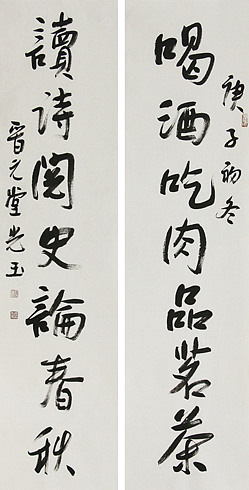 喝酒吃肉品茗茶
庚子初冬
讀詩閱史論春秋
晉元堂光玉